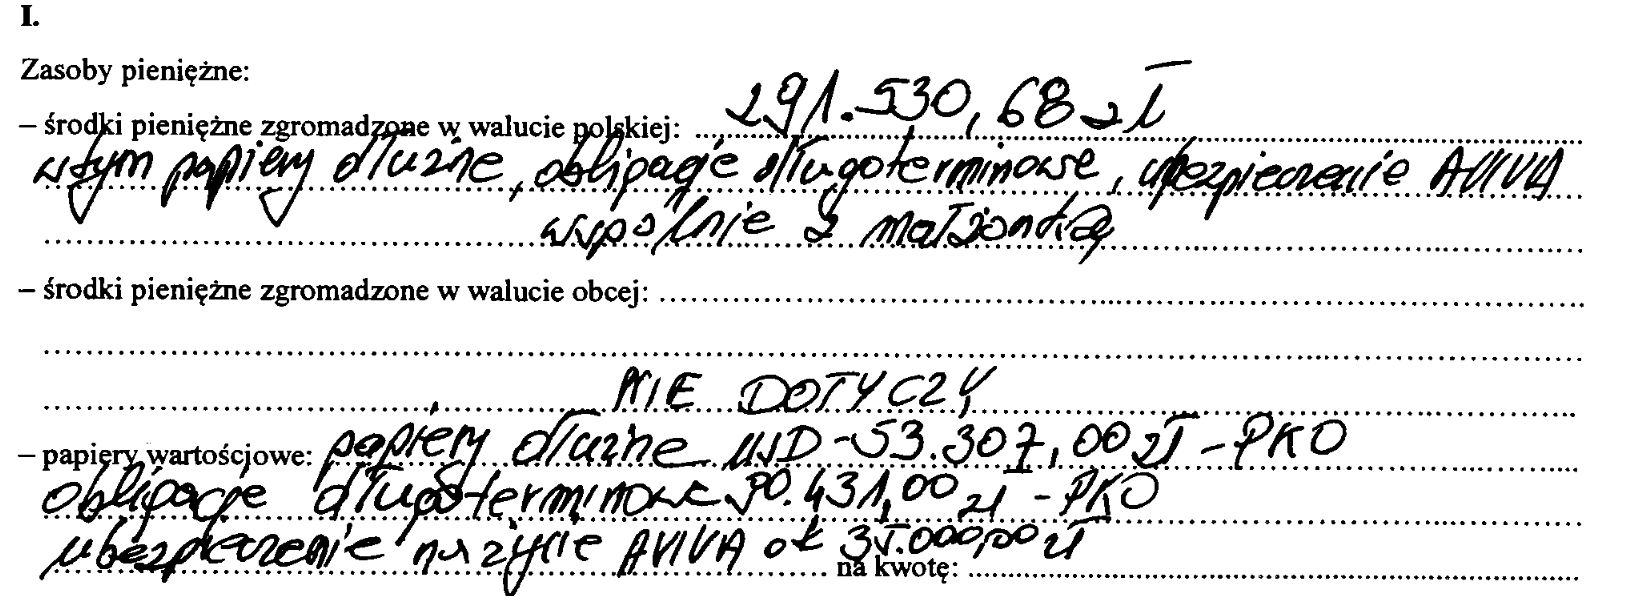 I.
Zasoby pieniężne:
– środki pieniężne zgromadzone w walucie polskiej: 291.530,68 zł
w tym papiery dłużne, obligacje długoterminowe, ubezpieczenie AVIVA
wspólnie z małżonką
– środki pieniężne zgromadzone w walucie obcej:
NIE DOTYCZY
– papiery wartościowe: papiery dłużne USD - 53.307,00 zł - PKO
obligacje długoterminowe 90.431,00 zł - PKO
ubezpieczenie na życie AVIVA ok 35.000,00 zł na kwotę: